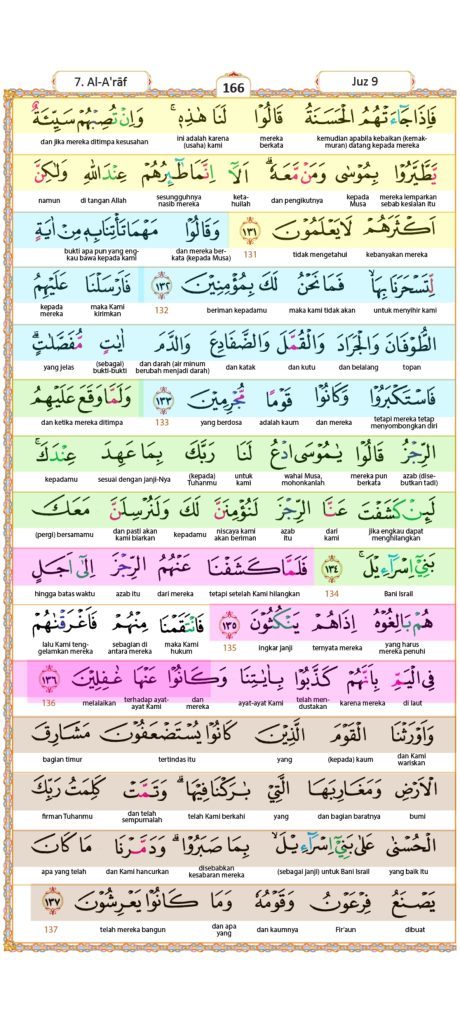 7. Al-A'rāf
166
Juz 9
فَاِذَا جَاۤءَتْهُمُ الْحَسَنَةُ قَالُوْا لَنَا هٰذِهٖ ۚ وَاِنْ تُصِبْهُمْ سَيِّئَةٌ
kemudian apabila kebaikan (kemak-muran) datang kepada mereka mereka berkata ini adalah karena (usaha) kami dan jika mereka ditimpa kesusahan
يَّطَّيَّرُوْا بِمُوْسٰى وَمَنْ مَّعَهٗ ۗ اَلَآ اِنَّمَا طٰۤىِٕرُهُمْ عِنْدَ اللّٰهِ وَلٰكِنَّ
mereka lemparkan sebab kesialan itu kepada Musa dan pengikutnya keta-huilah sesungguhnya nasib mereka di tangan Allah namun
اَكْثَرَهُمْ لَا يَعْلَمُوْنَ ١٣١ وَقَالُوْا مَهْمَا تَأْتِنَا بِهٖ مِنْ اٰيَةٍ
kebanyakan mereka tidak mengetahui 131 dan mereka ber-kata (kepada Musa) bukti apa pun yang eng-kau bawa kepada kami
لِّتَسْحَرَنَا بِهَاۙ فَمَا نَحْنُ لَكَ بِمُؤْمِنِيْنَ ١٣٢ فَاَرْسَلْنَا عَلَيْهِمُ
untuk menyihir kami maka kami tidak akan beriman kepadamu 132 maka Kami kirimkan kepada mereka
الطُّوْفَانَ وَالْجَرَادَ وَالْقُمَّلَ وَالضَّفَادِعَ وَالدَّمَ اٰيٰتٍ مُّفَصَّلٰتٍۗ
topan dan belalang dan kutu dan katak dan darah (air minum berubah menjadi darah) (sebagai) bukti-bukti yang jelas
فَاسْتَكْبَرُوْا وَكَانُوْا قَوْمًا مُّجْرِمِيْنَ ١٣٣ وَلَمَّا وَقَعَ عَلَيْهِمُ
tetapi mereka tetap menyombongkan diri dan mereka adalah kaum yang berdosa 133 dan ketika mereka ditimpa
الرِّجْزُ قَالُوْا يٰمُوْسَى ادْعُ لَنَا رَبَّكَ بِمَا عَهِدَ عِنْدَكَۚ
azab (dise-butkan tadi) mereka pun berkata wahai Musa, mohonkanlah untuk kami (kepada) Tuhanmu sesuai dengan janji-Nya kepadamu
لَىِٕنْ كَشَفْتَ عَنَّا الرِّجْزَ لَنُؤْمِنَنَّ لَكَ وَلَنُرْسِلَنَّ مَعَكَ
jika engkau dapat menghilangkan dari kami azab itu niscaya kami akan beriman kepadamu dan pasti akan kami biarkan (pergi) bersamamu
بَنِيْٓ اِسْرَاۤءِيْلَ ۚ ١٣٤ فَلَمَّا كَشَفْنَا عَنْهُمُ الرِّجْزَ اِلٰٓى اَجَلٍ
Bani Israil 134 tetapi setelah Kami hilangkan dari mereka azab itu hingga batas waktu
هُمْ بَالِغُوْهُ اِذَا هُمْ يَنْكُثُوْنَ ١٣٥ فَانْتَقَمْنَا مِنْهُمْ فَاَغْرَقْنٰهُمْ
yang harus mereka penuhi ternyata mereka ingkar janji 135 maka Kami hukum sebagian di antara mereka lalu Kami teng-gelamkan mereka
فِى الْيَمِّ بِاَنَّهُمْ كَذَّبُوْا بِاٰيٰتِنَا وَكَانُوْا عَنْهَا غٰفِلِيْنَ ١٣٦
di laut karena mereka telah men-dustakan ayat-ayat Kami dan mereka terhadap ayat-ayat Kami melalaikan 136
وَاَوْرَثْنَا الْقَوْمَ الَّذِيْنَ كَانُوْا يُسْتَضْعَفُوْنَ مَشَارِقَ
dan Kami wariskan (kepada) kaum yang tertindas itu bagian timur
الْاَرْضِ وَمَغَارِبَهَا الَّتِيْ بٰرَكْنَا فِيْهَاۗ وَتَمَّتْ كَلِمَتُ رَبِّكَ
bumi dan bagian baratnya yang telah Kami berkahi dan telah sempurnalah firman Tuhanmu
الْحُسْنٰى عَلٰى بَنِيْٓ اِسْرَاۤءِيْلَۙ بِمَا صَبَرُوْاۗ وَدَمَّرْنَا مَا كَانَ
yang baik itu (sebagai janji) untuk Bani Israil disebabkan kesabaran mereka dan Kami hancurkan apa yang telah
يَصْنَعُ فِرْعَوْنُ وَقَوْمُهٗ وَمَا كَانُوْا يَعْرِشُوْنَ ١٣٧
dibuat Fir'aun dan kaumnya dan apa yang telah mereka bangun 137